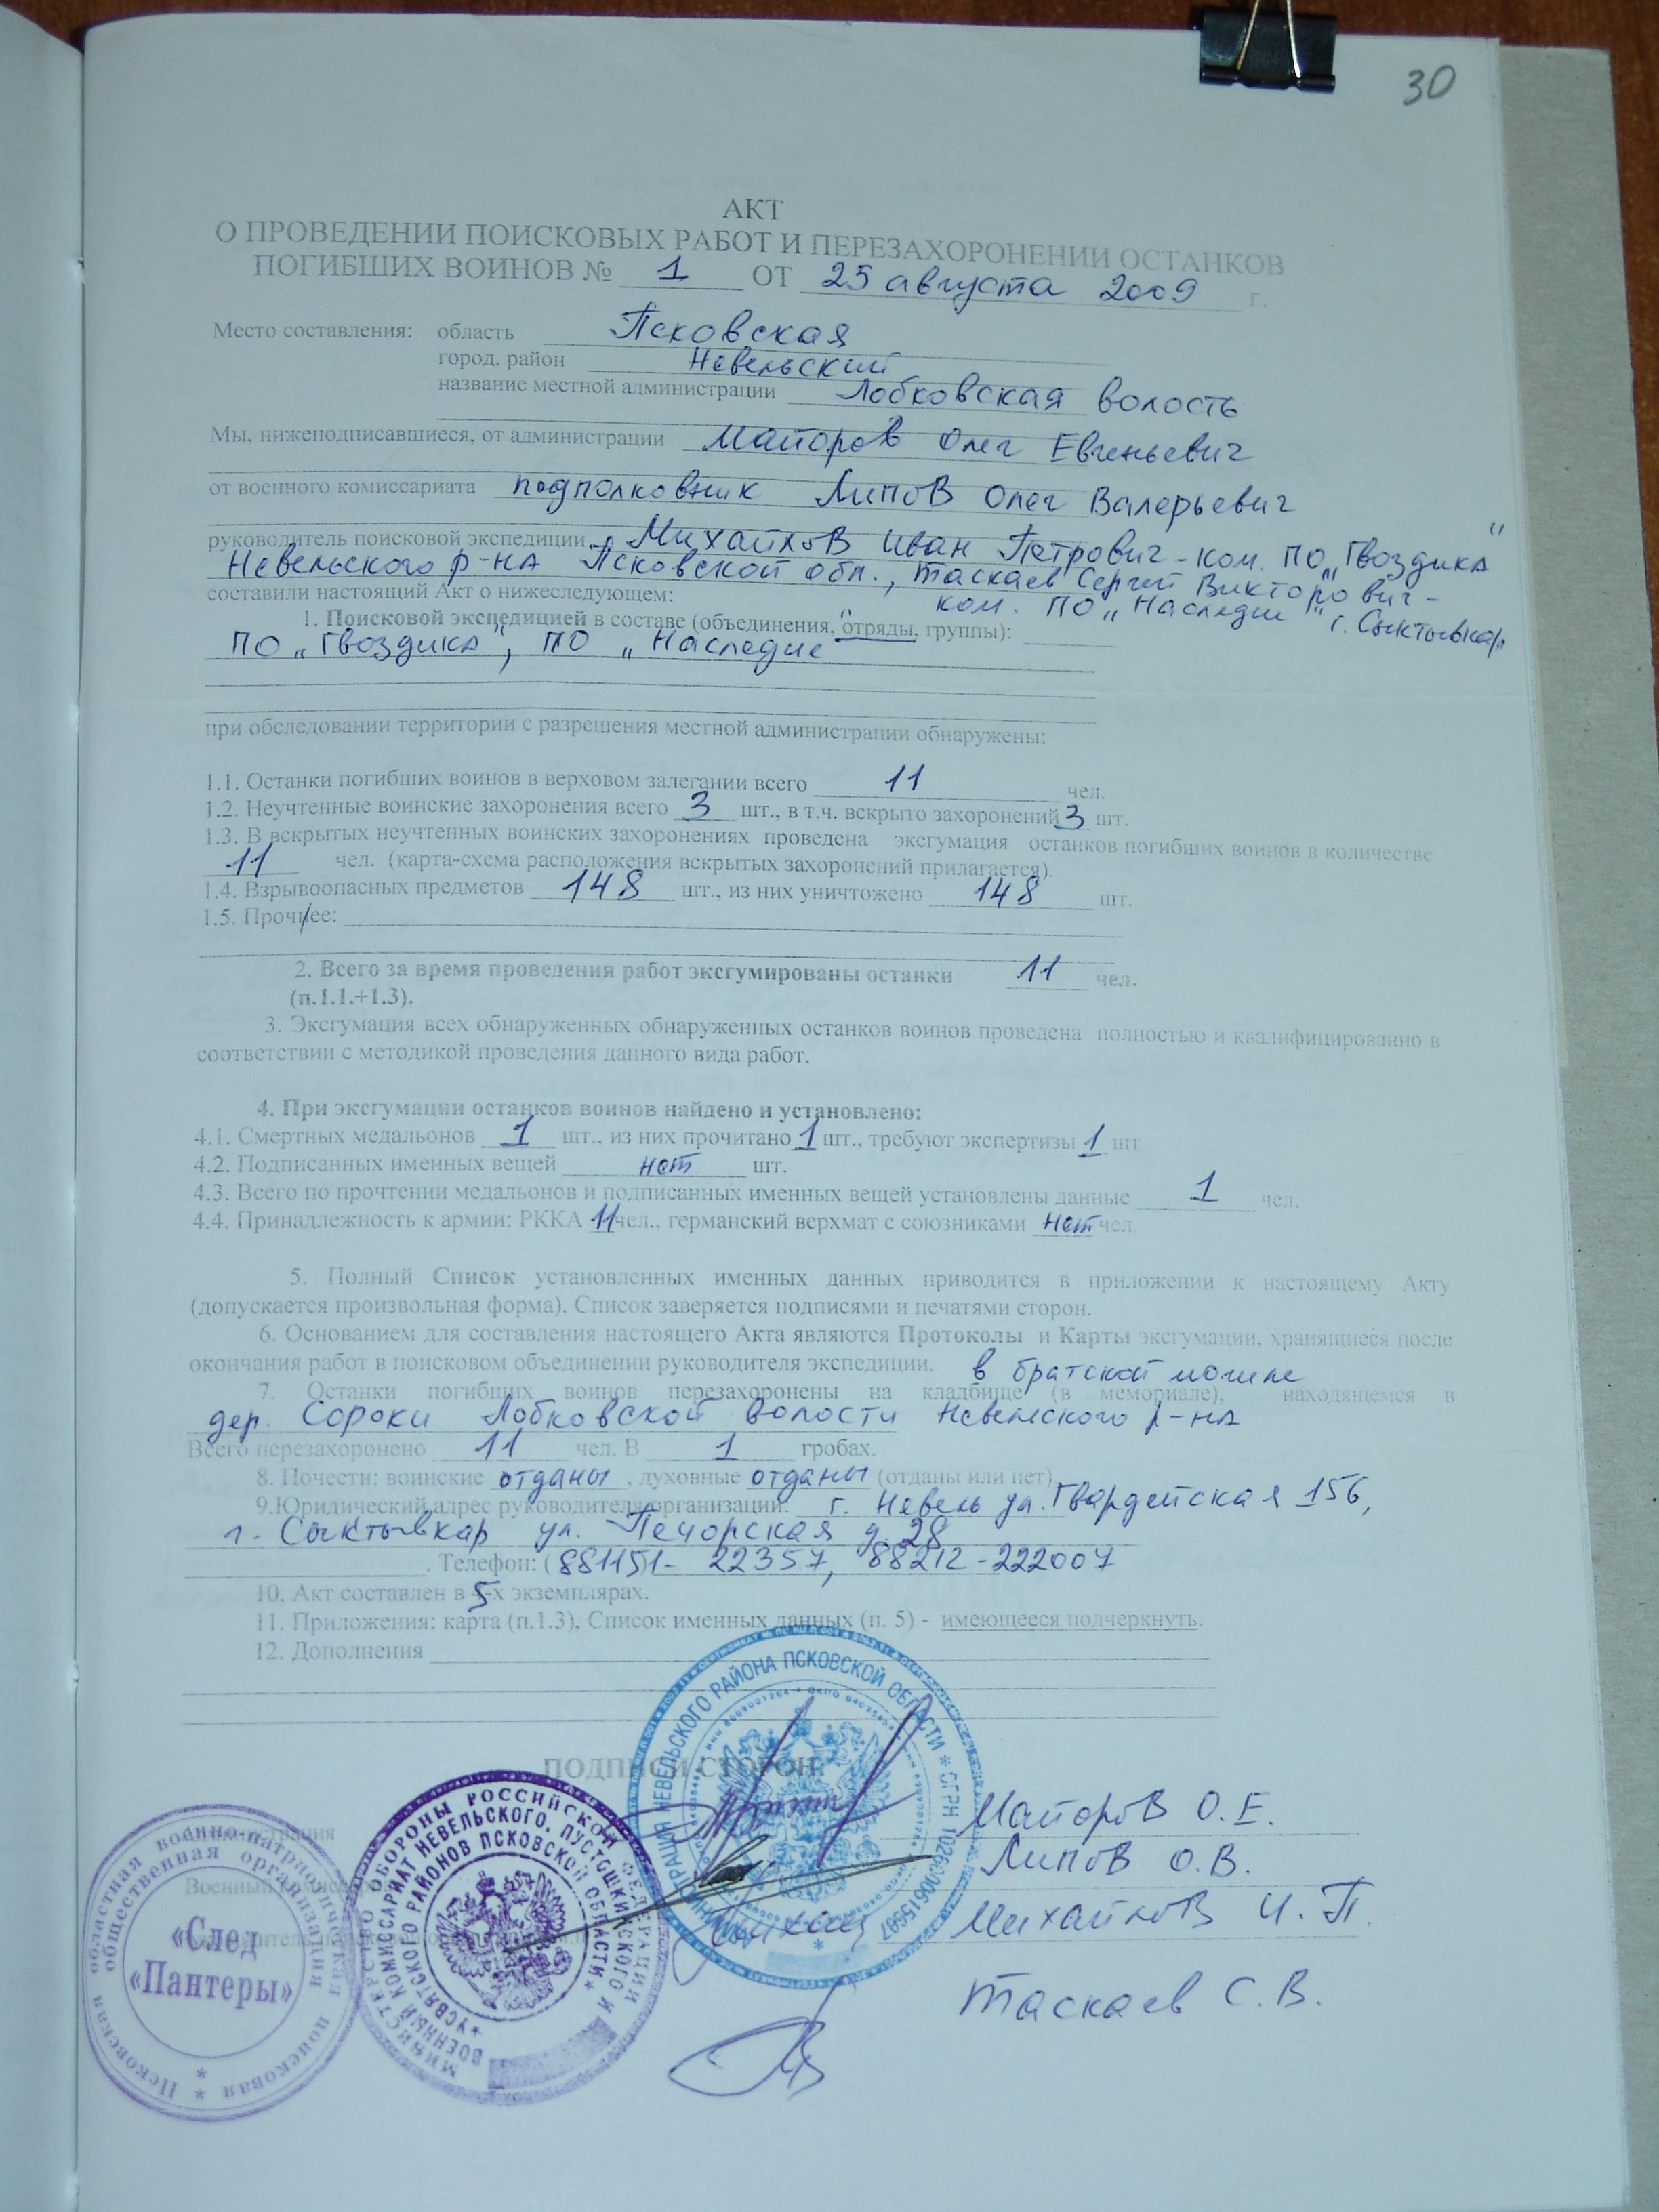 30
АКТ
О ПРОВЕДЕНИИ ПОИСКОВЫХ РАБОТ И ПЕРЕЗАХОРОНЕНИИ ОСТАНКОВ
ПОГИБШИХ ВОИНОВ № 1 ОТ 25 августа 2009 г.
Место составления: область Псковская
город, район Невельский
название местной администрации Лобковская волость
Мы, нижеподписавшиеся, от администрации Майоров Олег Евгеньевич
от военного комиссариата подполковник Липов Олег Валерьевич
руководитель поисковой экспедиции Михайлов Иван Петрович - ком. ПО „Гвоздика"
Невельского р-на Псковской обл., Таскаев Сергей Викторович -
составили настоящий Акт о нижеследующем: ком. ПО „Наследие" г. Сыктывкар
1. Поисковой экспедицией в составе (объединения, отряды, группы):
ПО „Гвоздика", ПО „Наследие"
при обследовании территории с разрешения местной администрации обнаружены:
1.1. Останки погибших воинов в верховом залегании всего 11 чел.
1.2. Неучтенные воинские захоронения всего 3 шт., в т.ч. вскрыто захоронений 3 шт.
1.3. В вскрытых неучтенных воинских захоронениях проведена эксгумация останков погибших воинов в количестве
11 чел. (карта-схема расположения вскрытых захоронений прилагается).
1.4. Взрывоопасных предметов 148 шт., из них уничтожено 148 шт.
1.5. Прочнее:
2. Всего за время проведения работ эксгумированы останки 11 чел.
(п.1.1.+1.3).
3. Эксгумация всех обнаруженных обнаруженных останков воинов проведена полностью и квалифицированно в
соответствии с методикой проведения данного вида работ.
4. При эксгумации останков воинов найдено и установлено:
4.1. Смертных медальонов 1 шт., из них прочитано 1 шт., требуют экспертизы 1 шт
4.2. Подписанных именных вещей нет шт.
4.3. Всего по прочтении медальонов и подписанных именных вещей установлены данные 1 чел.
4.4. Принадлежность к армии: РККА 11 чел., германский верхмат с союзниками нет чел.
5. Полный Список установленных именных данных приводится в приложении к настоящему Акту
(допускается произвольная форма). Список заверяется подписями и печатями сторон.
6. Основанием для составления настоящего Акта являются Протоколы и Карты эксгумации, хранящиеся после
окончания работ в поисковом объединении руководителя экспедиции. в братской могиле
7. Останки погибших воинов перезахоронены на кладбище (в мемориале), находящемся в
дер. Сороки Лобковской волости Невельского р-на
Всего перезахоронено 11 чел. В 1 гробах.
8. Почести: воинские отданы, духовные отданы (отданы или нет)
9.Юридический адрес руководителя организации: г. Невель ул. Гвардейская 156,
г. Сыктывкар ул. Печорская д. 28
Телефон: (881151- 22357, 88212-222007
10. Акт составлен в 5-х экземплярах.
11. Приложения: карта (п.1.3), Список именных данных (п. 5) - имеющееся подчеркнуть.
12. Дополнения
ПОДПИСИ СТОРОН:
администрация Майоров О. Е.
Военный Липов О.В.
Михайлов И. П.
Таскаев С. В.
АДМИНИСТРАЦИЯ НЕВЕЛЬСКОГО РАЙОНА ПСКОВСКОЙ ОБЛАСТИ * ОГРН
МИНИСТЕРСТВО ОБОРОНЫ РОССИЙСКОЙ ФЕДЕРАЦИИ
ВОЕННЫЙ КОМИССАРИАТ НЕВЕЛЬСКОГО, ПУСТОШКИНСКОГО И
УСВЯТСКОГО РАЙОНОВ ПСКОВСКОЙ ОБЛАСТИ
Псковская областная военно-патриотическая поисковая
общественная организация
«След
«Пантеры»